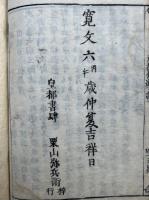 寛文六丙午歳仲夏吉祥日
皇都書肆
栗山弥兵衛梓行